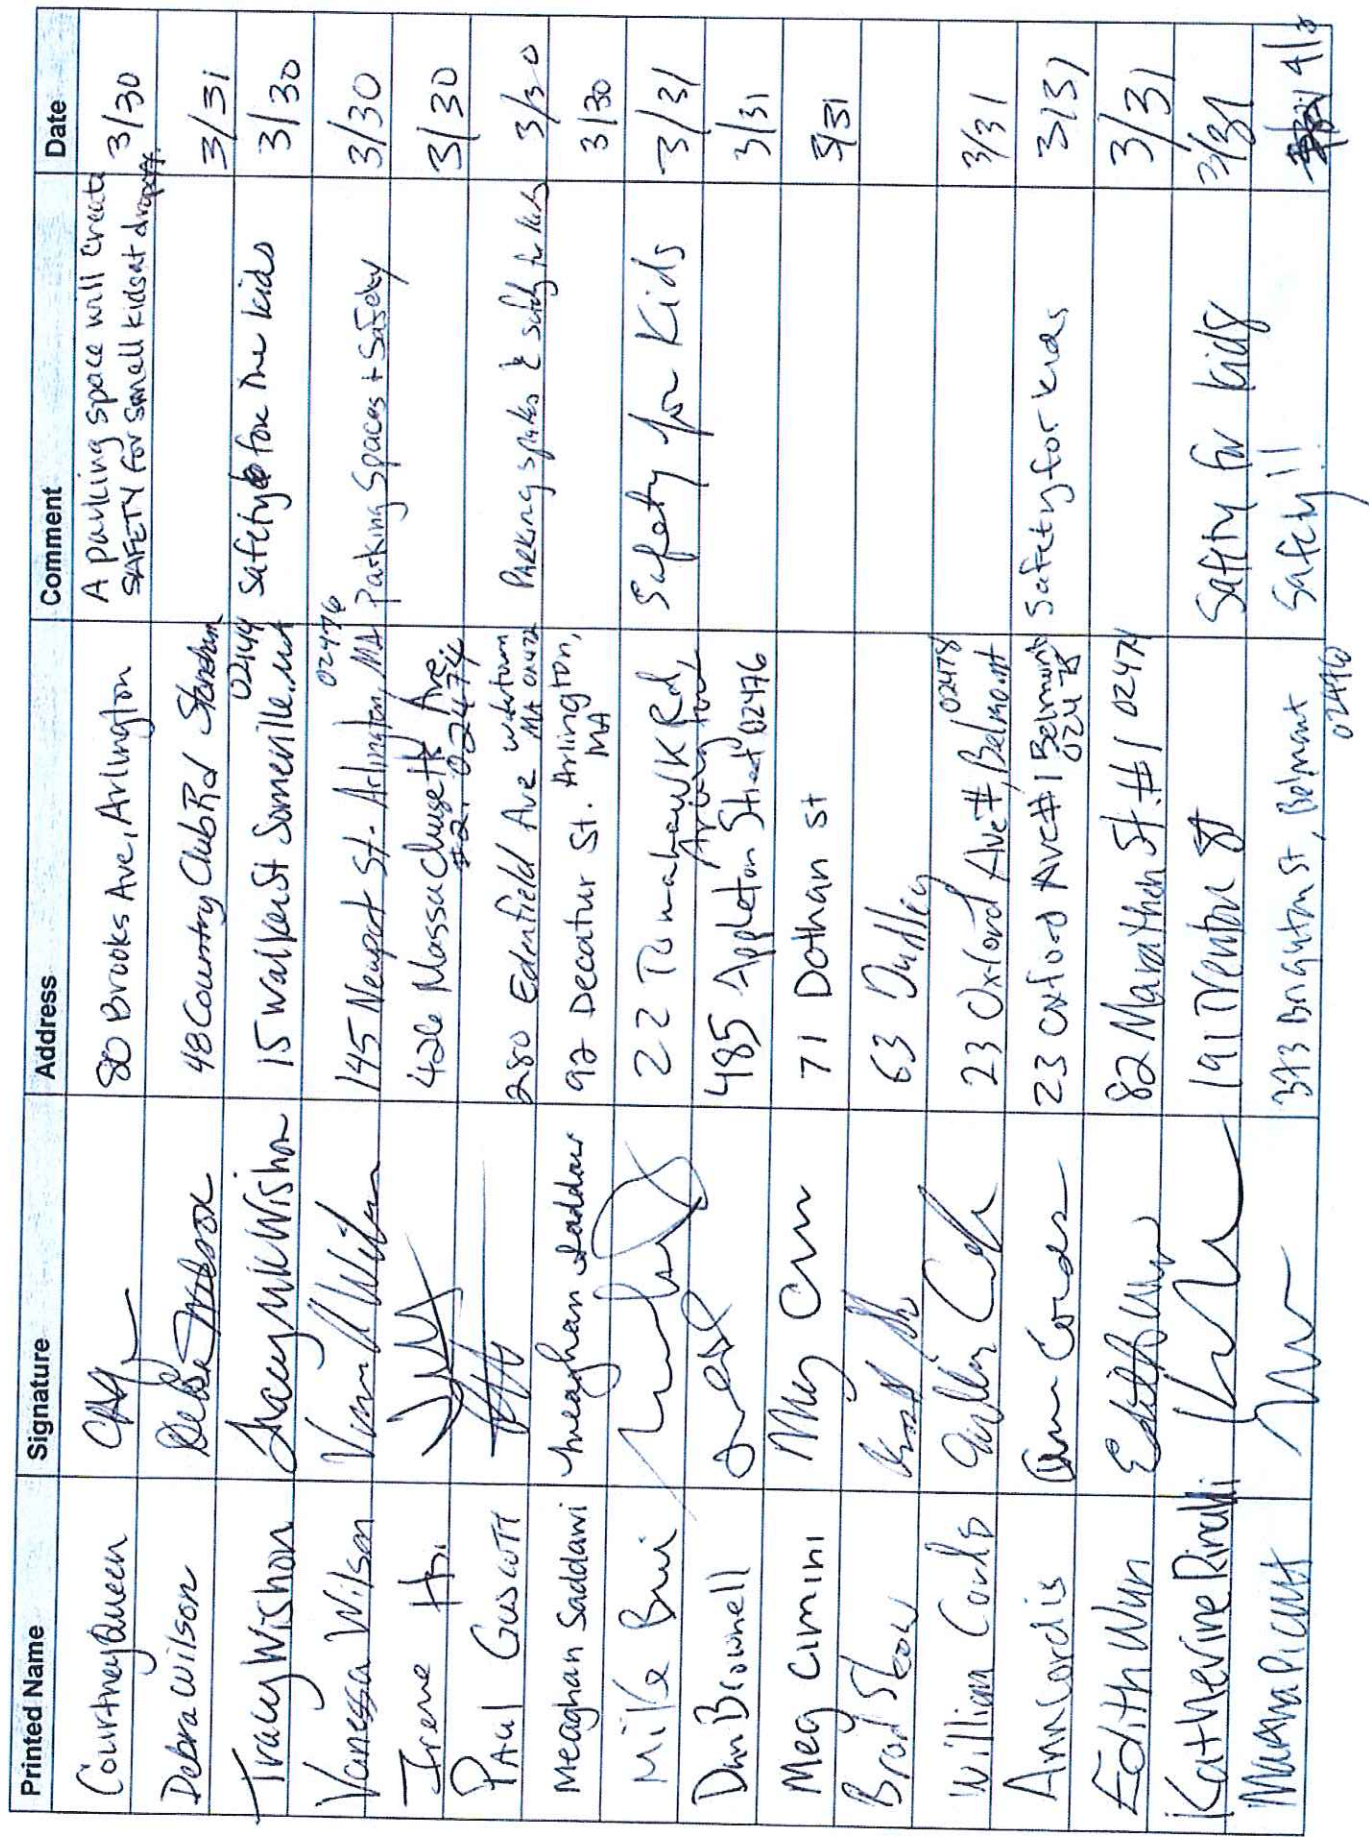 Printed Name Signature Address Comment Date
Courtney Queen 80 Brooks Ave, Arlington A parking space will create SAFETY for small kids at dropoff. 3/30
Debra Wilson Debra Wilson 48 Country Club Rd Stoneham 3/31
Tracey Wishon Tracey MK Wishon 15 Walker St Somerville, MA 02144 Safety for the kids 3/30
Vanessa Wilson 145 Newport St. Arlington, MA 02476 Parking Spaces + Safety 3/30
Irene 426 Massachusetts Ave #2. 02474 3/30
PAUL GUSCOTT 280 Edenfield Ave Watertown MA 02472 PARKING spaks & safety for kids 3/30
Meaghan Saddawi Meaghan Saddawi 92 Decatur St. Arlington, MA 3/30
Mike 22 Tomahawk Rd, Arlington Safety for Kids 3/31
Dan Brownell 485 Appleton Street 02476 3/31
Meg Cimini Meg 71 Dothan St 3/31
Brad 63 Dudley
William 23 Oxford Ave #1 Belmont 02478 3/31
Ann Cordis 23 Oxford Ave #1 Belmont 02478 Safety for kids 3/31
Edith Wun 82 Marathon St. #1 02474 3/31
Katherine Rinaldi 191 Trenton St Safty for kids 3/31
373 Brighton St, Belmont Safety!!